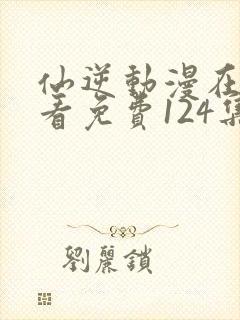 仙逆動漫在
看免費124集
劉麗鎖